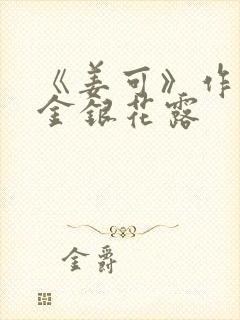 《姜可》作
金银花露
金爵